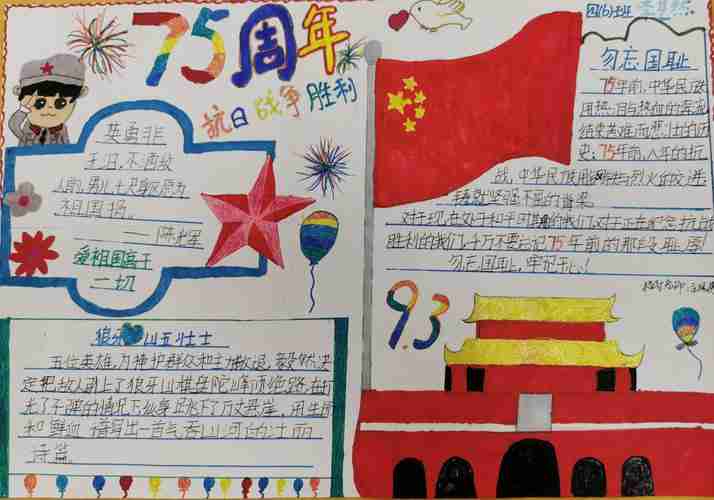 75周年
抗日战争胜利
四(6)班
英勇非
无泪,不洒放
人前,男儿七尺躯愿为
祖国捐。
爱祖国高于
一切
狼牙山五壮士
五位英雄,为掩护群众和主力撤退,毅然决
定把敌人引上了狼牙山棋盘陀峰顶绝路,在打
光了子弹的情况下纵身跳下了万丈悬崖,用生命
和鲜血谱写出一首气吞山河的壮丽
诗篇。
勿忘国耻
75年前,中华民族
用热泪与热血的
结束苦难而悲壮的历
史;75年前,八年的抗
战,中华民族用与烈火的
铸就坚强不屈的
对于现在处于和平的我们,对于正在纪念抗战
胜利的我们,千万不要忘记75年前的那段耻辱!
勿忘国耻,牢记于心!
9.3